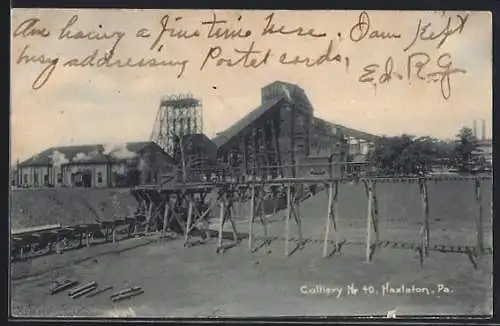 Am having a fine time here. Dam Kept
busy addressing Postel cards.
Ed. R.G.
Colliery No 40, Hazleton, Pa.